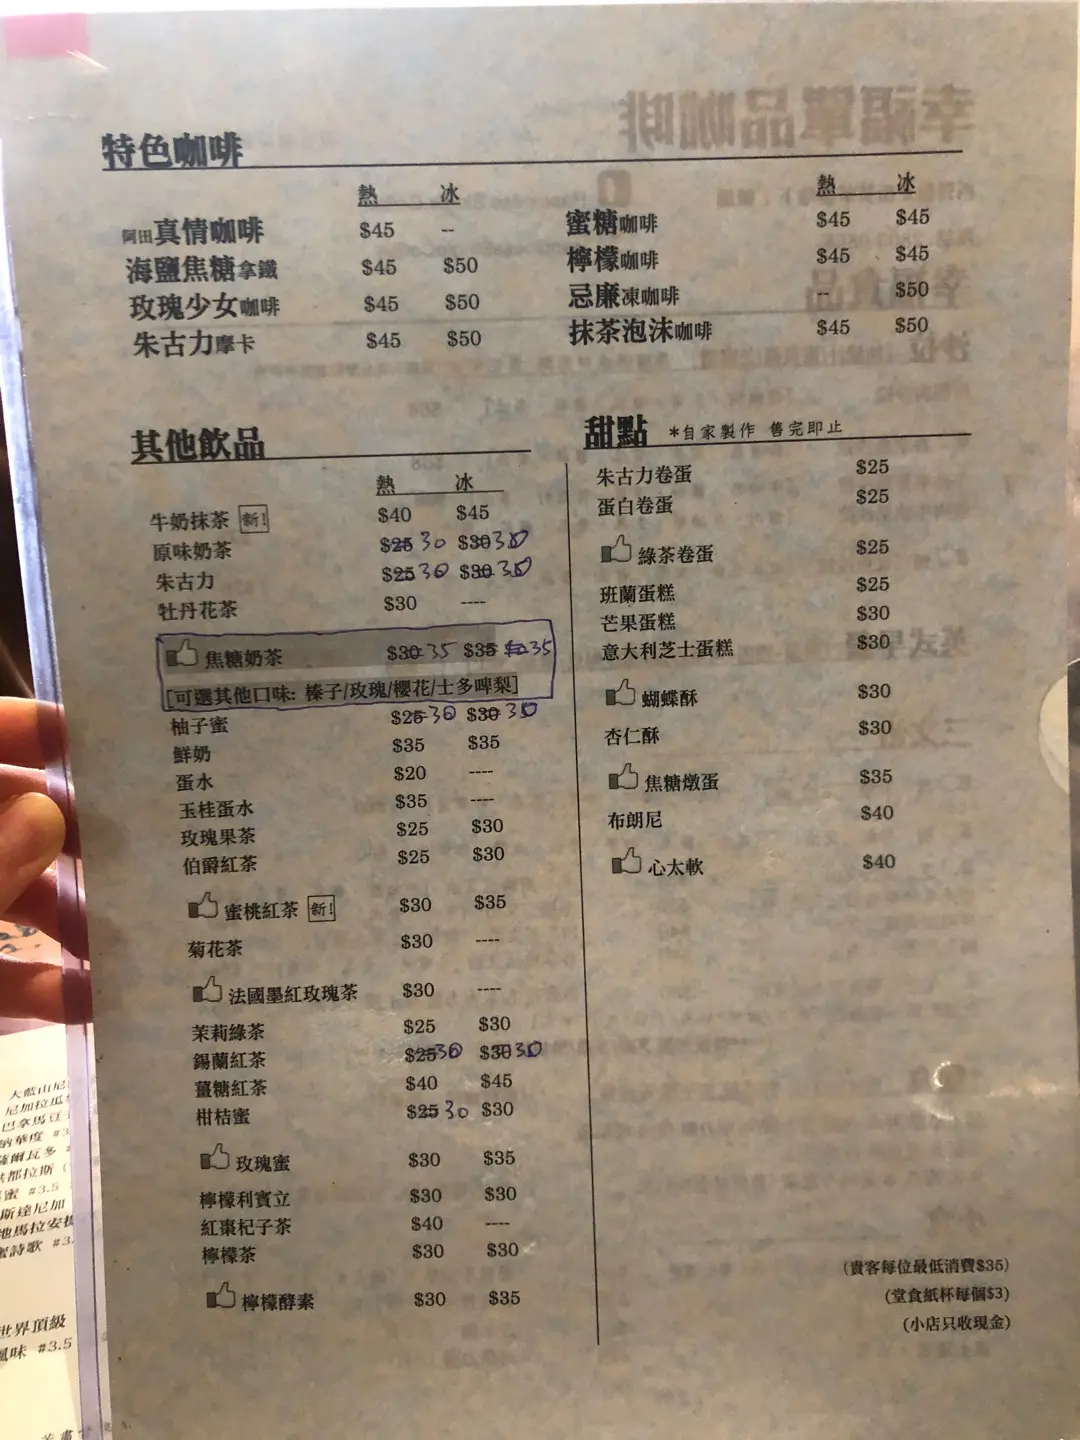 特色咖啡
熱 冰
阿田真情咖啡 $45 --
海鹽焦糖拿鐵 $45 $50
玫瑰少女咖啡 $45 $50
朱古力摩卡 $45 $50
熱 冰
蜜糖咖啡 $45 $45
檸檬咖啡 $45 $45
忌廉凍咖啡 -- $50
抹茶泡沫咖啡 $45 $50
其他飲品
熱 冰
牛奶抹茶 新! $40 $45
原味奶茶 $25 30 $30 30
朱古力 $25 30 $30 30
牡丹花茶 $30 ----
焦糖奶茶 $30 35 $35 35
[可選其他口味: 榛子/玫瑰/櫻花/士多啤梨]
柚子蜜 $25 30 $30 30
鮮奶 $35 $35
蛋水 $20 ----
玉桂蛋水 $35 ----
玫瑰果茶 $25 $30
伯爵紅茶 $25 $30
蜜桃紅茶 新! $30 $35
菊花茶 $30 ----
法國墨紅玫瑰茶 $30 ----
茉莉綠茶 $25 $30
錫蘭紅茶 $25 30 $30 30
薑糖紅茶 $40 $45
柑桔蜜 $25 30 $30
玫瑰蜜 $30 $35
檸檬利賓立 $30 $30
紅棗杞子茶 $40 ----
檸檬茶 $30 $30
檸檬酵素 $30 $35
甜點 *自家製作 售完即止
朱古力卷蛋 $25
蛋白卷蛋 $25
綠茶卷蛋 $25
班蘭蛋糕 $25
芒果蛋糕 $30
意大利芝士蛋糕 $30
蝴蝶酥 $30
杏仁酥 $30
焦糖燉蛋 $35
布朗尼 $40
心太軟 $40
(貴客每位最低消費$35)
(堂食紙杯每個$3)
(小店只收現金)
大藍山尼
尼加拉瓜
巴拿馬豆
納華度 #3
薩爾瓦多
洪都拉斯
蜜 #3.5
斯達尼加
地馬拉安
蜜詩歌 #3.
世界頂級
風味 #3.5